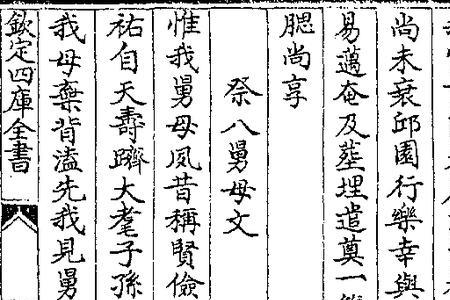 尚未衰邱園行樂幸與
易邁奄及塟埋遣奠一
腮尚享
祭八舅母文
惟我舅母夙昔稱賢儉
祐自天壽躋大耄子孫
我母棄背溘先我見舅
欽定四庫全書